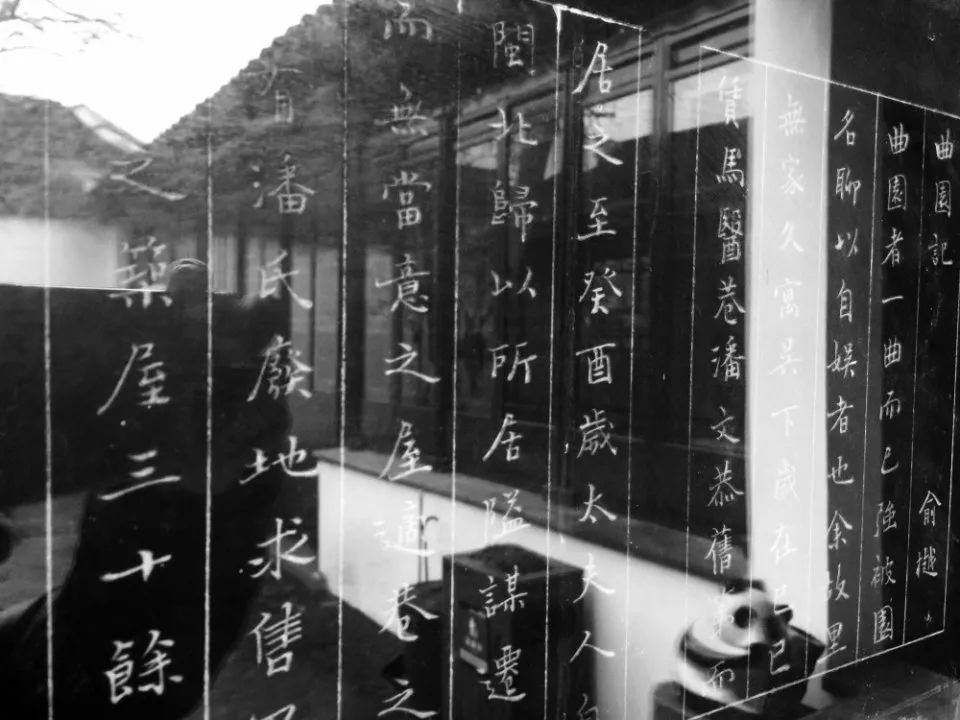 曲園記 俞樾
曲園者一曲而已強被園
名聊以自娛者也余故里
無家久寓吳下歲在己巳
賃馬醫巷潘文恭舊第而
居之至癸酉歲太夫人自
閩北歸以所居隘謀遷
而無當意之屋適巷之
有潘氏廢地求售
之築屋三十餘